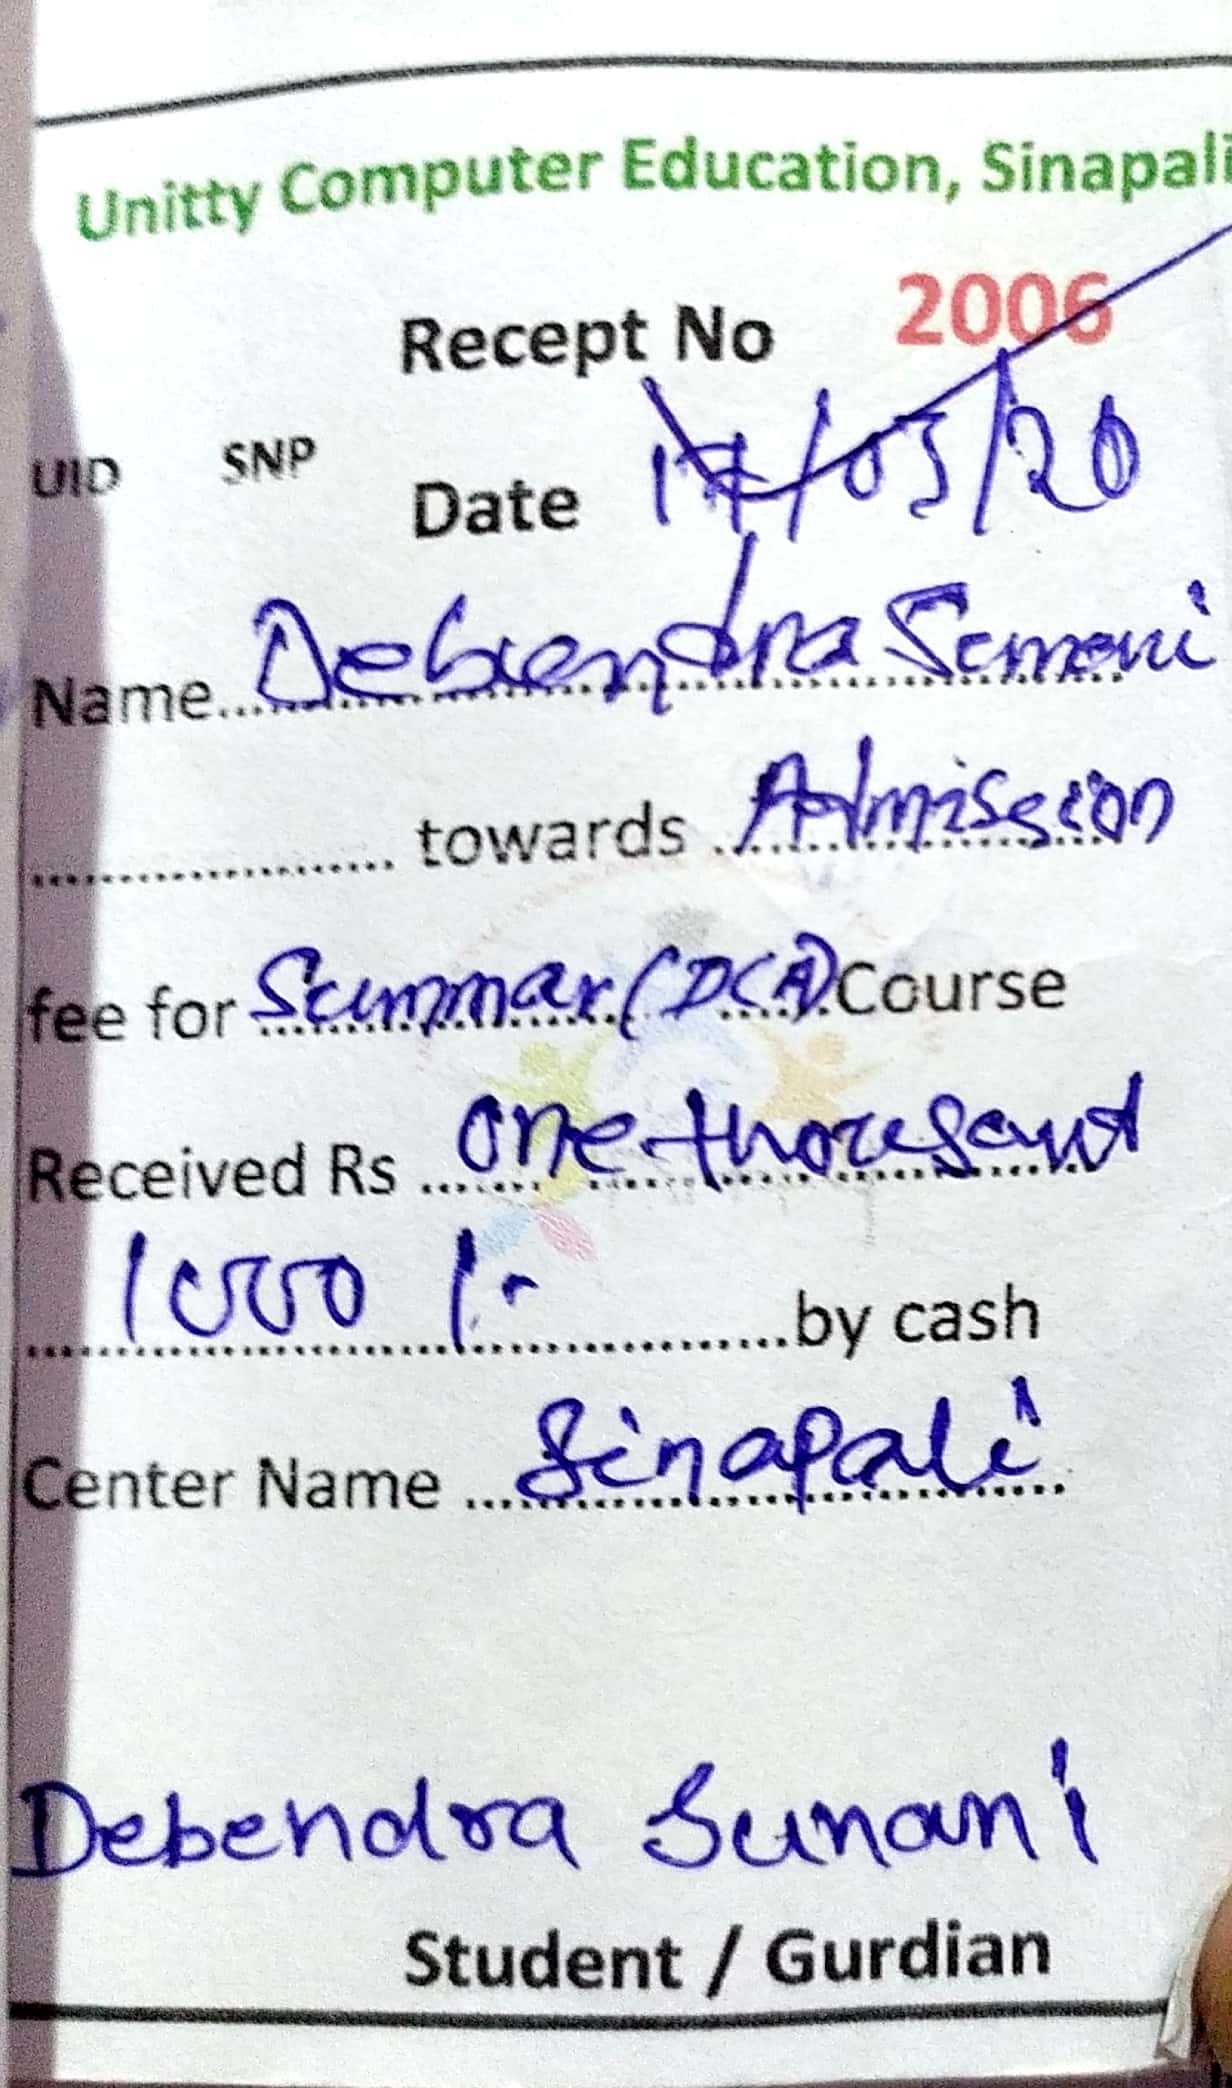 Unitty Computer Education, Sinapali
Recept No 2006
UID SNP
Date /03/20
Name...Debendra Sunani
.................... towards ..Admission
fee for Summar (DCA) Course
Received Rs ....One thousand
1000/- ....by cash
Center Name ....Sinapali
Debendra Sunani
Student / Gurdian